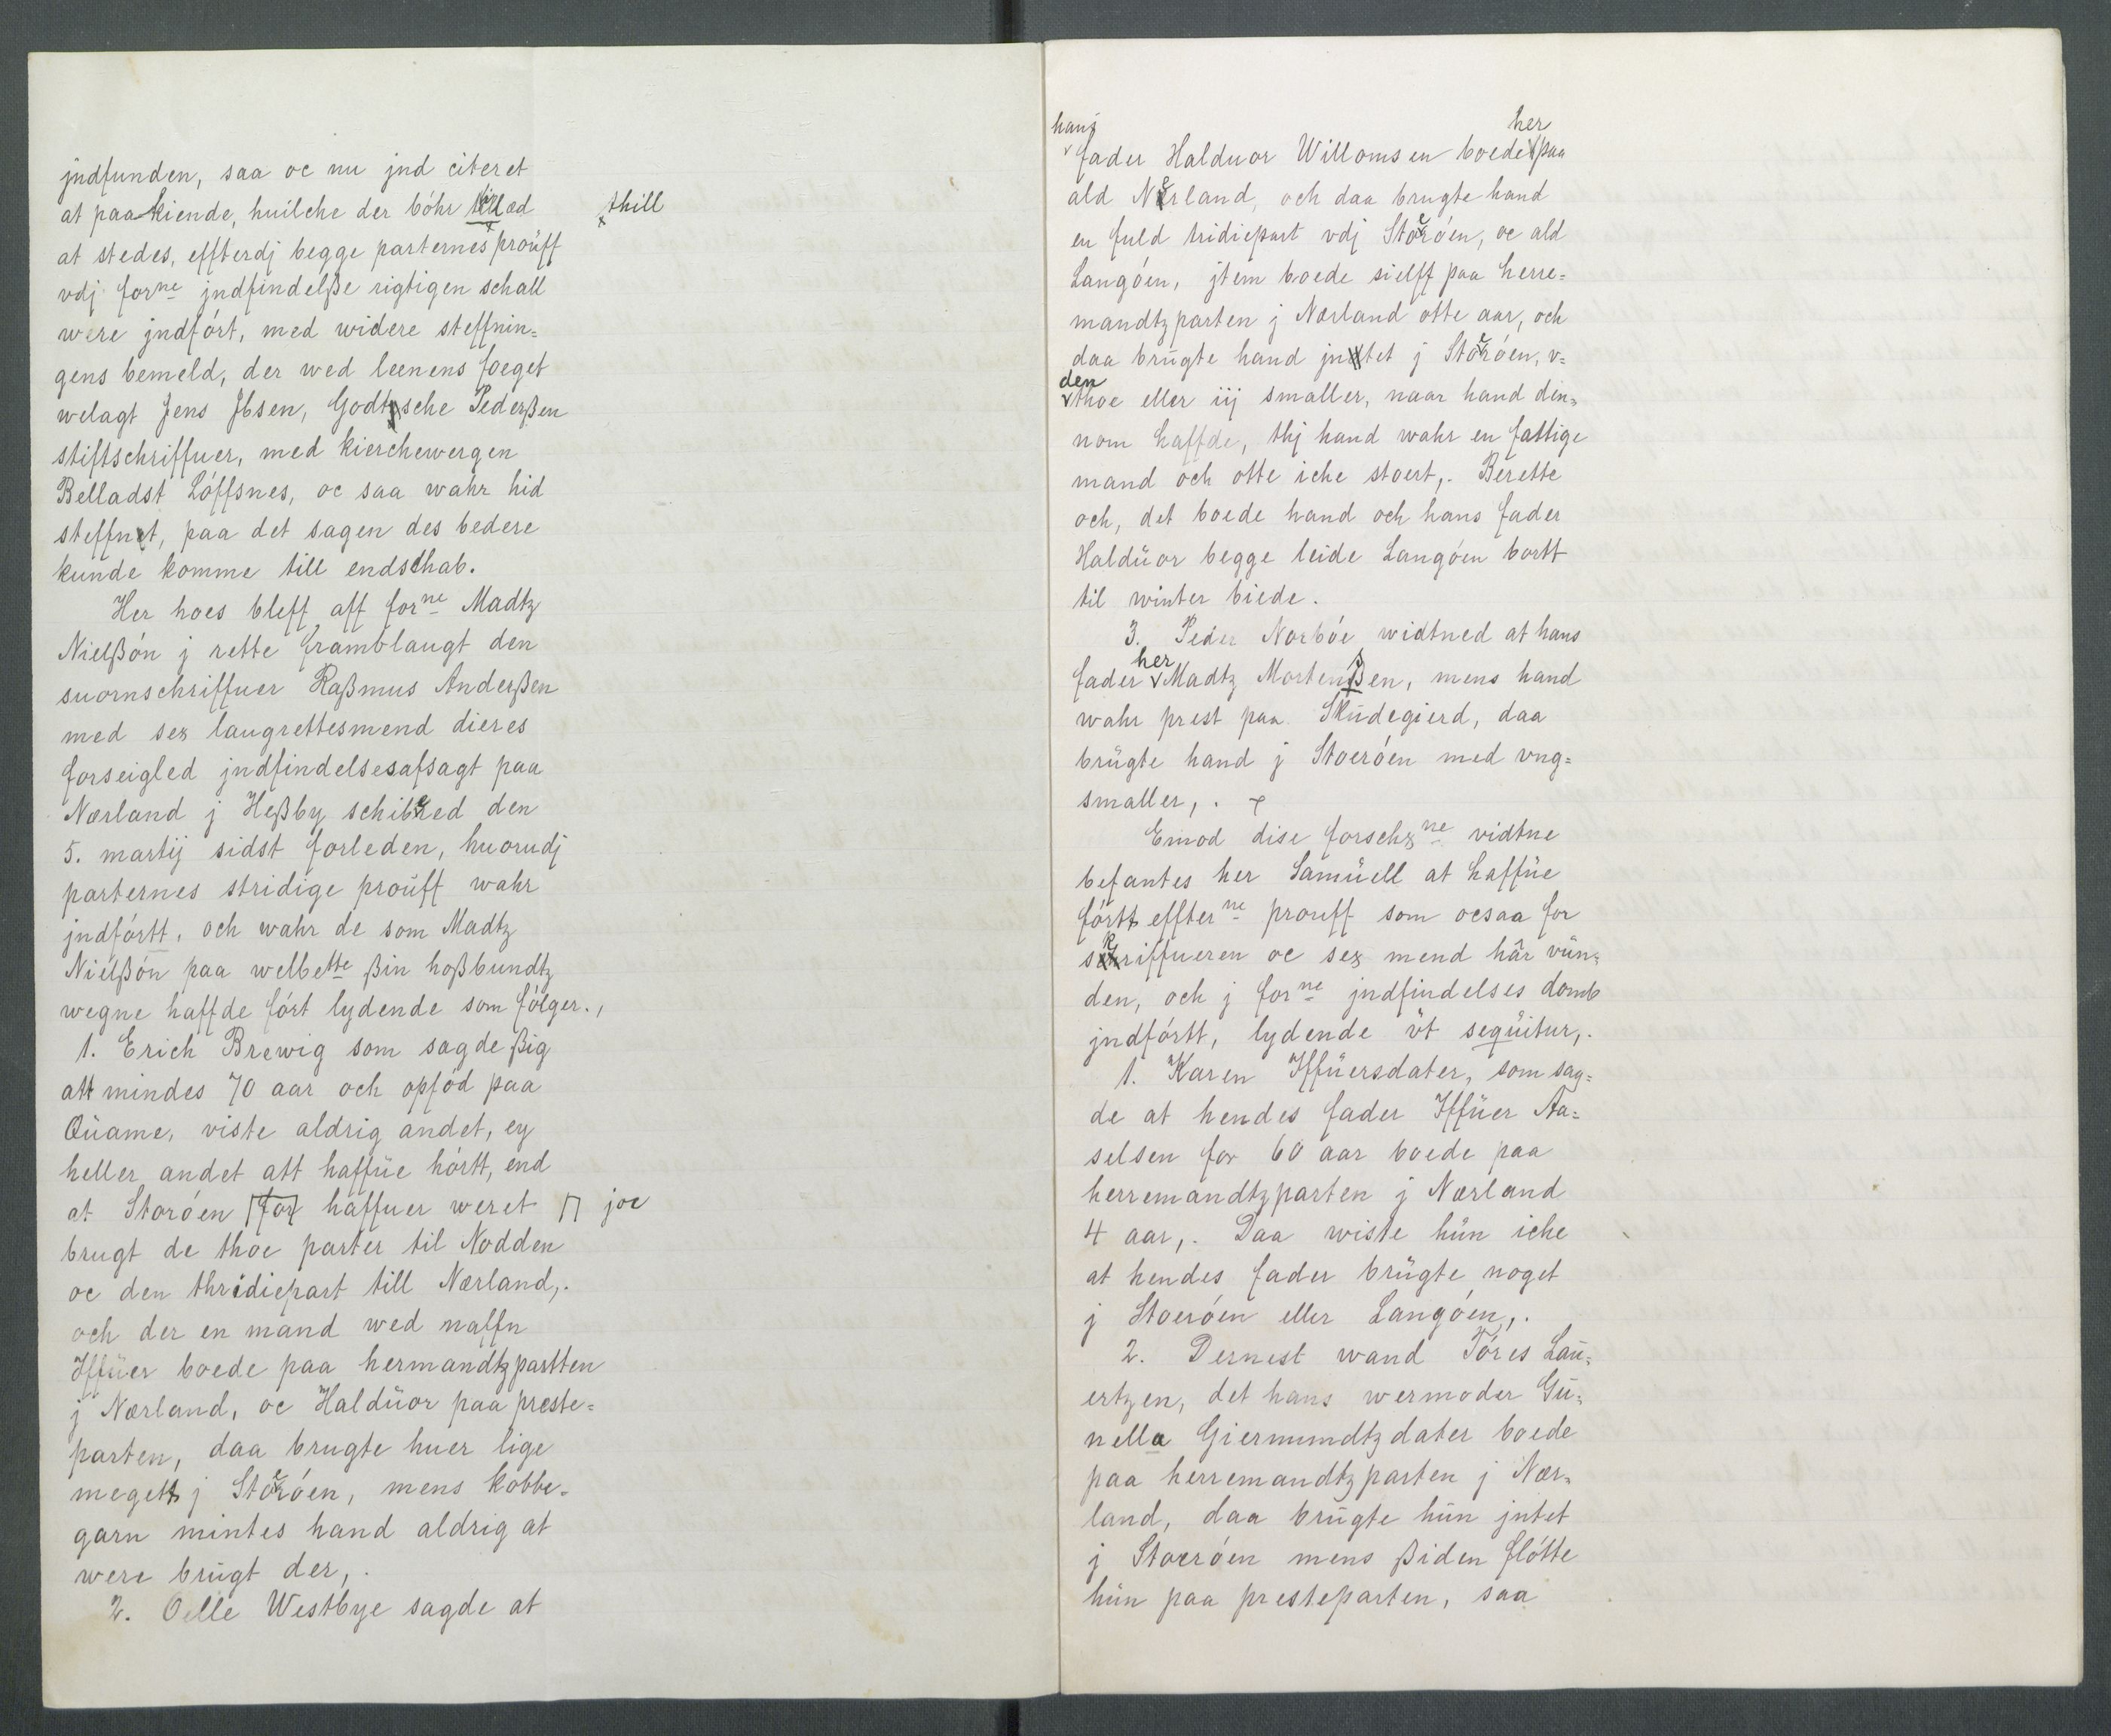 jndfunden, saa oc nu jnd citeret
at paa kiende, huilche der bóhr tillæd thill
at stedes, effterdj begge parternes proüff
vdj forne jndfindelße rigtigen schall
were jndfórt, med widere steffnin=
gens bemeld, der wed leenens foeget
welagt Jens Jbsen, Godtzsche Pederßen
stiftschriffuer, med kierchewergen
Belladst Lóffsnes, oc saa wahr hid
steffnet, paa det sagen des bedere
kunde komme till endschab.
Her hoes bleff aff forne Madtz
Nielßón j rette framblaugt den
suornschriffuer Raßmus Anderßen
med sex laugrettesmend dieres
forseigled jndfindelsesafsagt paa
Nærland j Heßby schibred den
5. martij sidst forleden, huorudj
parternes stridige proüff wahr
jndfórtt, och wahr de som Madtz
Nielßón paa welbette ßin hoßbundtz
wegne haffde fórt lydende som fólger.,
1. Erich Brewig som sagde ßig
att mindes 70 aar och opfód paa
Qüame, viste aldrig andet, ey
heller andet att haffüe hórtt, end
at Storóen for haffuer weret joe
brugt de thoe parter til Nodden
oc den thridiepart till Nærland,.
och der en mand wed naffn
Iffüer boede paa hermandtzpartten
j Nærland, oc Haldüor paa preste=
parten, daa brugte huer lige
megett j Stoeróen, mens kobbe=
garn mintes hand aldrig at
were brügt der,.
2. Oelle Westbye sagde at
hans her
fader Halduor Willomsen boede paa
ald Nerland, och daa brugte hand
en fuld tridiepart vdj Stoeróen, oc ald
Langóen, jtem boede sielff paa herre=
mandtzparten j Nærland otte aar, och
daa brügte hand jntet j Stoeróen, v=
den
thoe eller iij smaller, naar hand den=
nom haffde, thj hand wahr en fattige
mand och otte iche stoert,. Berette
och, det boede hand och hans fader
Haldüor begge leide Langóen bortt
til winter biede.
3. Peder Norbóe widtned at hans
her s
fader Madtz Mortenßen, mens hand
wahr prest paa Skudegierd, daa
brügte hand j Stoeróen med vng=
smaller,.
Emod dise forschrne vidtne
befantes her Samüell at haffüe
fórtt effterne prouff som ocsaa for
skriffueren oc sex mend hâr vün=
den, och j forne jndfindelses domb
jndfórtt, lydende üt seqüitur,.
1. Karen Iffüersdater, som sag=
de at hendes fader Iffüer Aa=
selsen for 60 aar boede paa
herremandtzparten j Nærland
4 aar,. Daa wiste hün iche
at hendes fader brügte noget
j Stoeróen eller Langóen,.
2. Dernest wand Tóres Laü=
ertzen, det hans wermoder Gü=
nella Giermundtzdater boede
paa herremandtzparten j Nær=
land, daa brügte hün jntet
j Stoeróen mens ßiden flótte
hün paa presteparten, saa